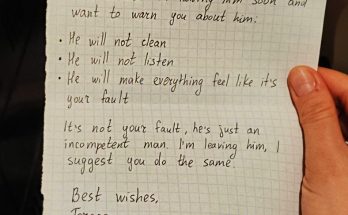 him soon and
want to warn you about him:
• He will not clean
• He will not listen
• He will make everything feel like it's
your fault
It's not your fault, he's just an
incompetent man. I'm leaving him, I
suggest you do the same.
Best wishes,